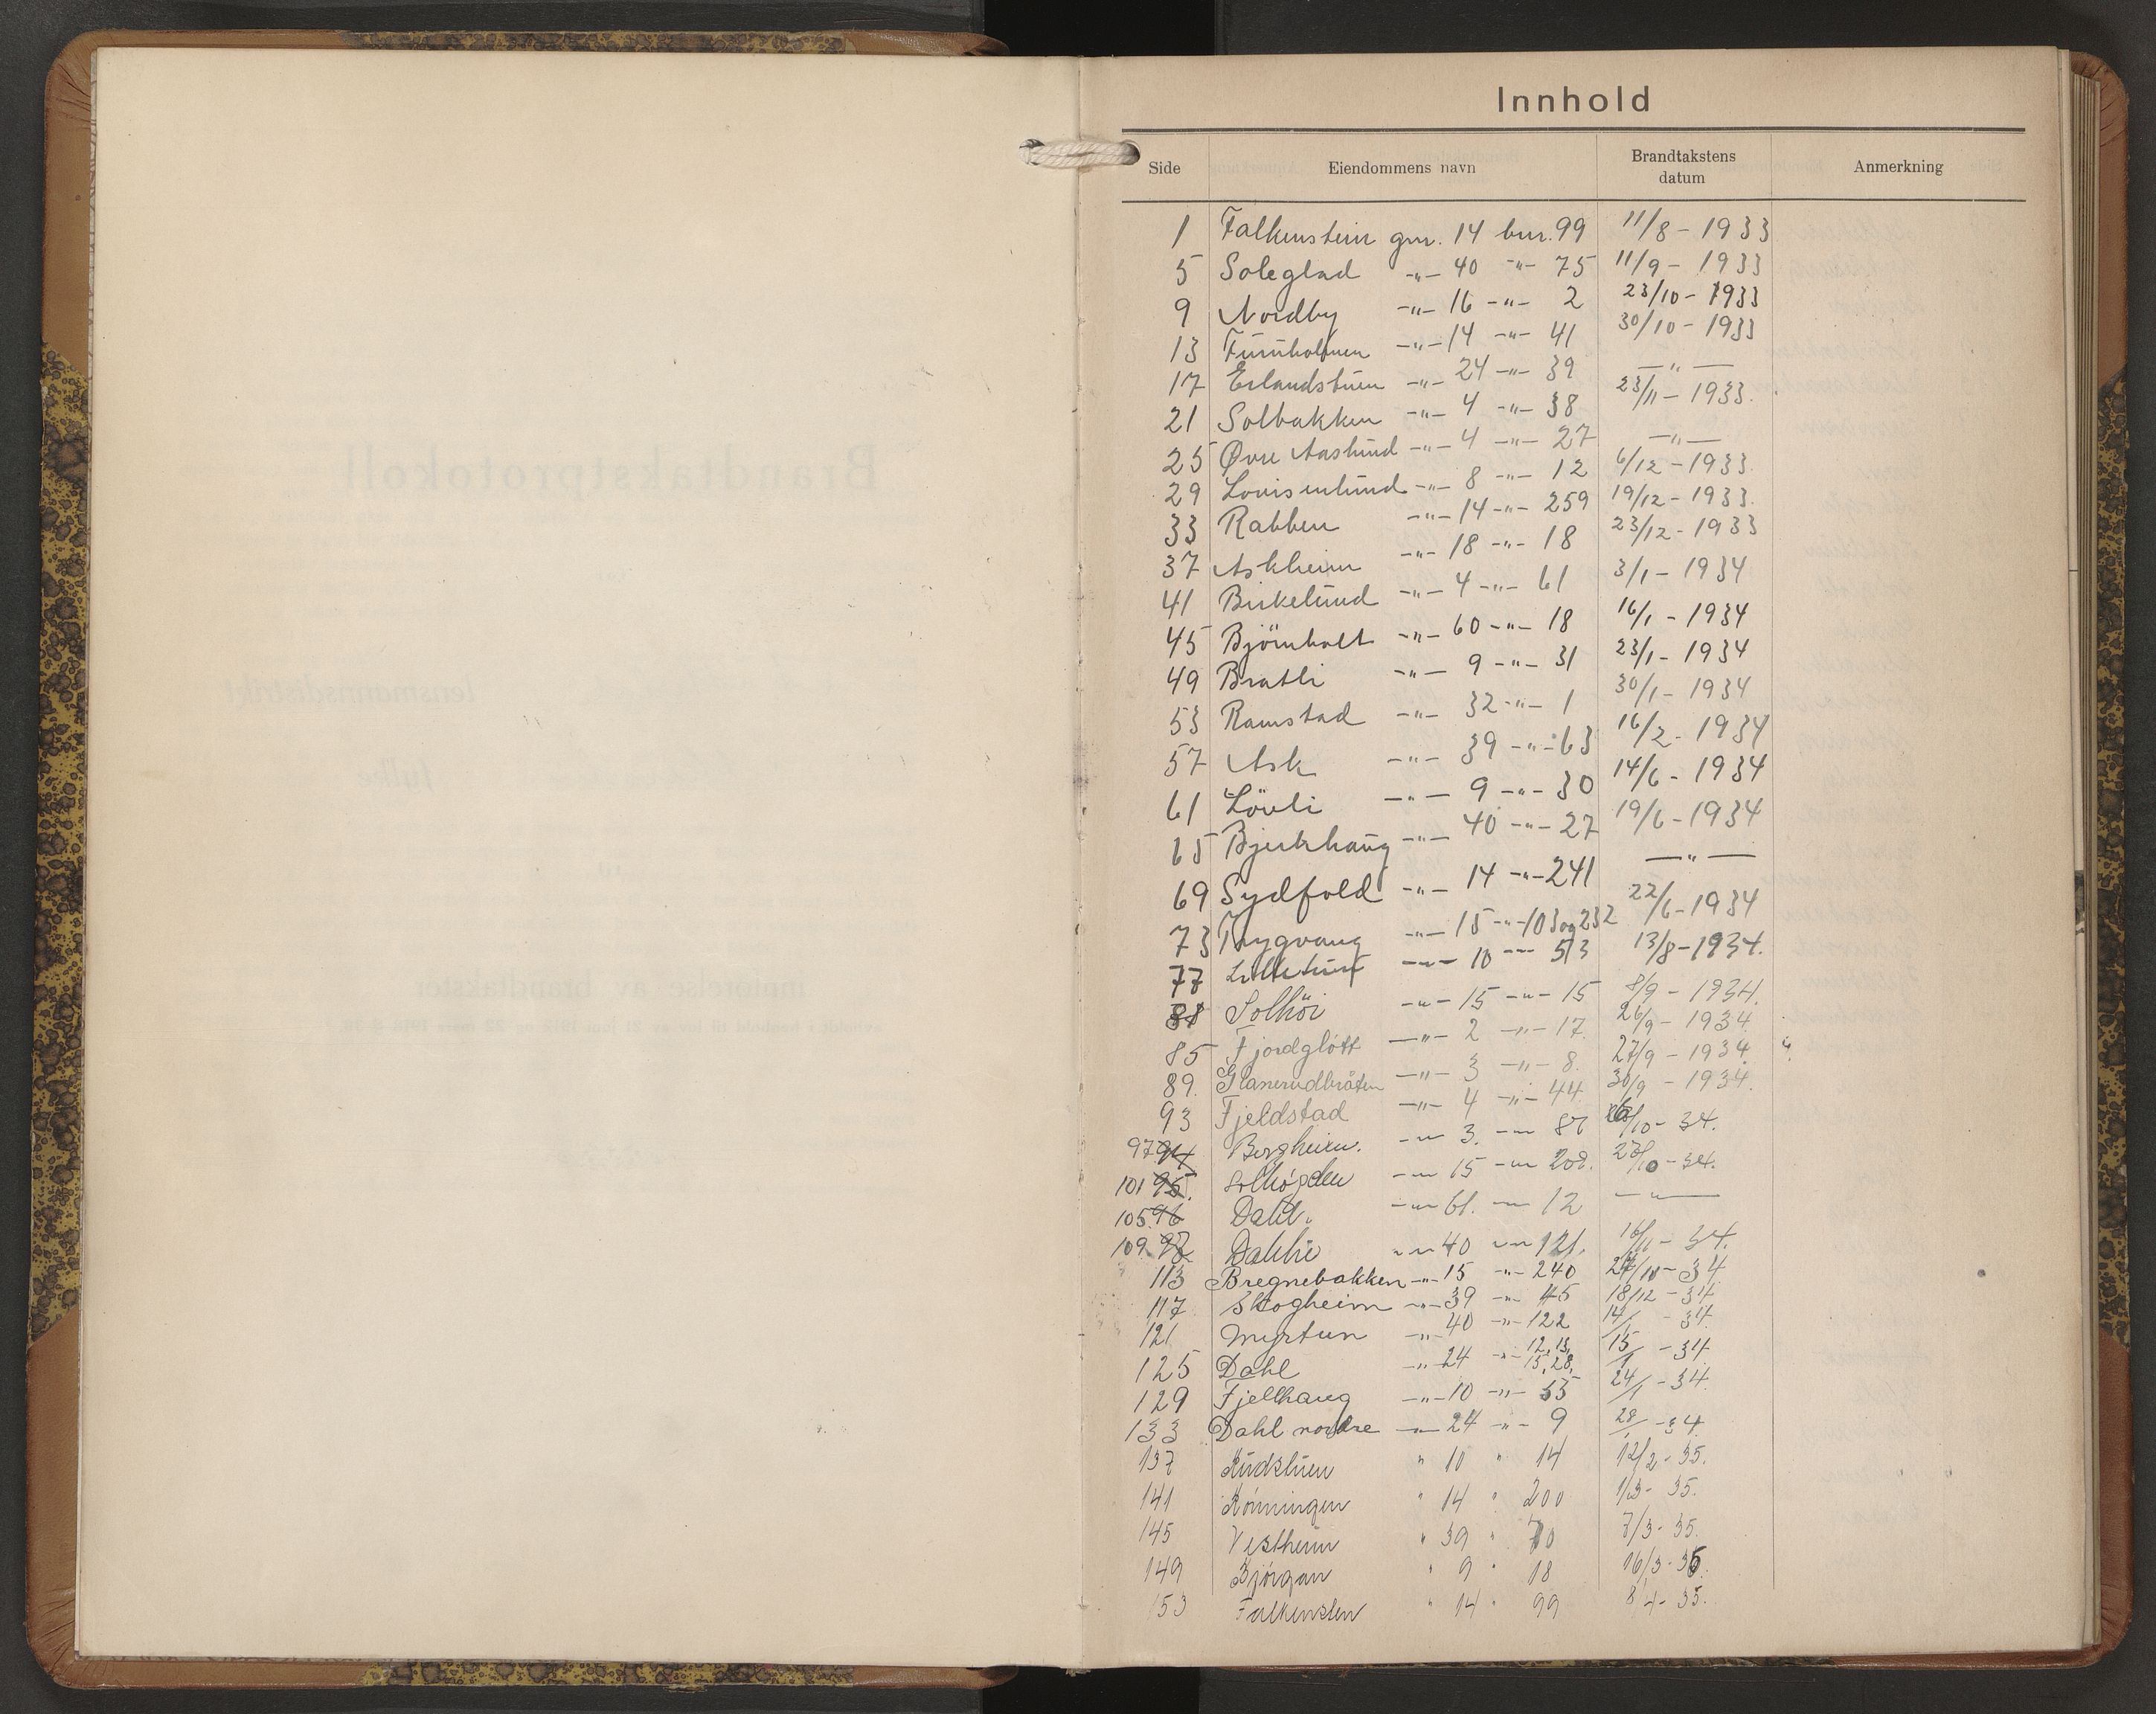 Innhold
Side Eiendommens navn Brandtakstens datum Anmerkning
1 Falkenstein gnr. 14 bnr. 99 11/8 - 1933
5 Soleglad -"- 40 -"- 75 11/9 - 1933
9 Nordby -"- 16 -"- 2 23/10 - 1933
13 Furuholmen -"- 14 -"- 41 30/10 - 1933
17 Erlandstuen -"- 24 -"- 39 -"-
21 Solbakken -"- 4 -"- 38 23/11 - 1933.
25 Øvre Aaslund -"- 4 -"- 27 -"-
29 Louisenlund -"- 8 -"- 12 6/12 - 1933.
33 Rabben -"- 14 -"- 259 19/12 - 1933.
37 Askheim -"- 18 -"- 18 23/12 - 1933
41 Birkelund -"- 4 -"- 61 3/1 - 1934
45 Björnholt -"- 60 -"- 18 16/1 - 1934
49 Bratli -"- 9 -"- 31 23/1 - 1934
53 Ramstad -"- 32 -"- 1 30/1 - 1934
57 Ask -"- 39 -"- 63 16/2 - 1934
61 Lövli -"- 9 -"- 30 14/6 - 1934
65 Bjerkhaug -"- 40 -"- 27 19/6 - 1934
69 Sydfold -"- 14 -"- 241 -"-
73 Trygvang -"- 15 -"- 103 og 232 22/6 - 1934
77 -"- 10 -"- 513 13/8 - 1934.
81 Solhöi -"- 15 -"- 15 8/9 - 1934.
85 Fjordglött -"- 2 -"- 17. 26/9 - 1934.
89. Glanerudbråten -"- 3 -"- 8. 27/9 - 1934.
93 Fjeldstad -"- 4 -"- 44. 30/9 - 1934.
97 94 Bergheim. -"- 3. -"- 87 /10 - 34.
101 95. Solhögden -"- 15 -"- 208. 10 - 34.
105. 96 Dahl. -"- 61. -"- 12 -"-
109. 98 Dahlie -"- 40 -"- 121. 16/11 - 34.
113 Bregnebakken -"- 15 -"- 240 27/11 - 34
117 Skogheim -"- 39 -"- 45 18/12 - 34
121 Myrtun -"- 40 -"- 122 14/1 - 34.
125 Dahl -"- 24 -"- 12, 13, 15, 28, 15/1 - 34
129 Fjellhaug -"- 10 -"- 55 24/1 - 34.
133 Dahl nordre -"- 24 -"- 9 28/1 - 34
137 Rudstuen " 10 " 14 12/2 - 35.
141 Rönningen " 14 " 200 1/3 - 35.
145 Vestheim " 39 " 70 7/3 - 35.
149 Björgan " 9 " 18 16/3 - 35.
153 Falkensten " 14 " 99 8/4 - 35.